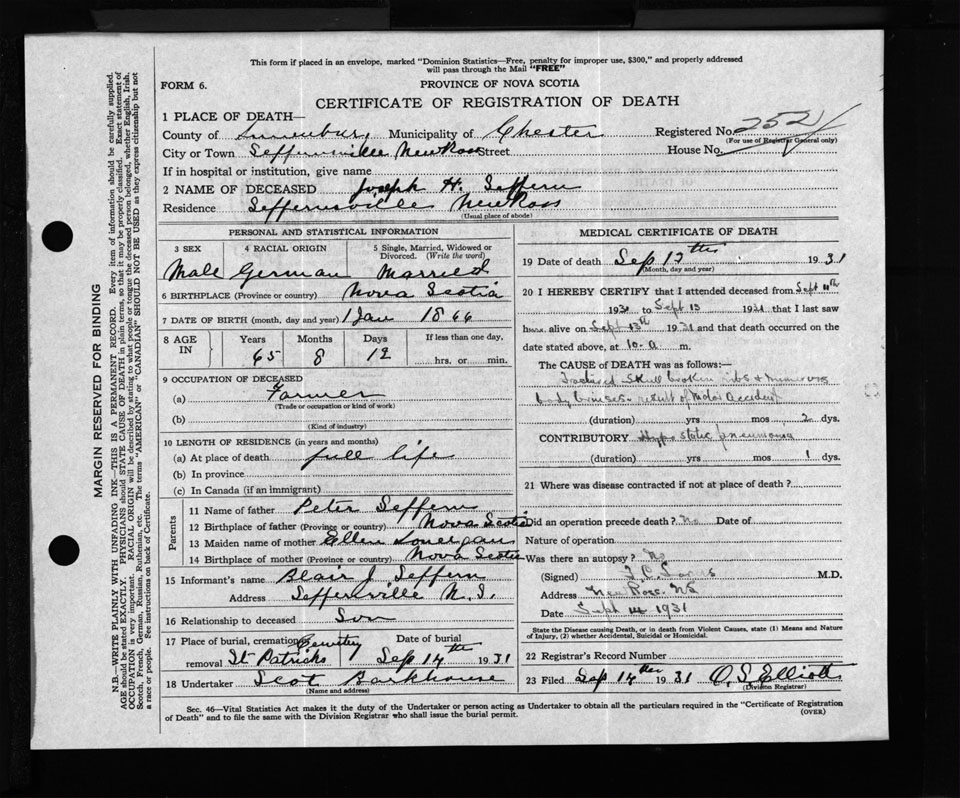 This form if placed in an envelope, marked "Dominion Statistics—Free, penalty for improper use, $300," and properly addressed
will pass through the Mail "FREE"
FORM 6.
PROVINCE OF NOVA SCOTIA
CERTIFICATE OF REGISTRATION OF DEATH
1 PLACE OF DEATH—
County of Lunenburg, Municipality of Chester Registered No. 252
(For use of Registrar General only)
City or Town Seffernsville New Ross Street House No.
If in hospital or institution, give name
2 NAME OF DECEASED Joseph H. Seffern
Residence Seffernsville New Ross
(Usual place of abode)
PERSONAL AND STATISTICAL INFORMATION
3 SEX 4 RACIAL ORIGIN 5 Single, Married, Widowed or
Divorced. (Write the word)
Male German Married
6 BIRTHPLACE (Province or country) Nova Scotia
7 DATE OF BIRTH (month, day and year) 1 Jan 1866
8 AGE IN Years Months Days If less than one day,
65 8 12 hrs. or min.
9 OCCUPATION OF DECEASED
(a) Farmer
(Trade or occupation or kind of work)
(b)
(Kind of industry)
10 LENGTH OF RESIDENCE (in years and months)
(a) At place of death full life
(b) In province
(c) In Canada (if an immigrant)
Parents
11 Name of father Peter Seffern
12 Birthplace of father (Province or country) Nova Scotia
13 Maiden name of mother Ellen Lonergan
14 Birthplace of mother (Province or country) Nova Scotia
15 Informant's name Blair J. Seffern
Address Seffernsville N.S.
16 Relationship to deceased Son
17 Place of burial, cremation or Cemetery Date of burial
removal St Patricks Sep 14th 1931
18 Undertaker Scot Barkhouse
(Name and address)
MEDICAL CERTIFICATE OF DEATH
19 Date of death Sep 13th 1931
(Month, day and year)
20 I HEREBY CERTIFY that I attended deceased from Sept 11th
1931 to Sept 13 1931 that I last saw
him alive on Sept 13th 1931 and that death occurred on the
date stated above, at 10- a m.
The CAUSE OF DEATH was as follows:—
Fractured Skull broken ribs & numerous
body bruises - result of Motor Accident
(duration) yrs mos 2 dys.
CONTRIBUTORY Hypostatic pneumonia
(duration) yrs mos 1 dys.
21 Where was disease contracted if not at place of death?
Did an operation precede death? No Date of
Nature of operation
Was there an autopsy? No
(Signed) M.D.
Address New Ross. NS
Date Sept 14 1931
State the Disease causing Death, or in death from Violent Causes, state (1) Means and Nature
of Injury, (2) whether Accidental, Suicidal or Homicidal.
22 Registrar's Record Number
23 Filed Sep 14th 1931 O. S. Elliott
(Division Registrar)
Sec. 46—Vital Statistics Act makes it the duty of the Undertaker or person acting as Undertaker to obtain all the particulars required in the "Certificate of Registration
of Death" and to file the same with the Division Registrar who shall issue the burial permit.
(OVER)
MARGIN RESERVED FOR BINDING
N.B.—WRITE PLAINLY WITH UNFADING INK—THIS IS A PERMANENT RECORD. Every item of information should be carefully supplied.
AGE should be stated EXACTLY. PHYSICIANS should STATE CAUSE OF DEATH in plain terms, so that it may be properly classified. Exact statement of
OCCUPATION is very important. RACIAL ORIGIN will be described by stating to what people or tongue the deceased person belonged, whether English, Irish,
Scotch, French, German, Russian, Ruthenian, etc. The terms "AMERICAN" or "CANADIAN" SHOULD NOT BE USED as they express citizenship but not
a race or people. See instructions on back of Certificate.